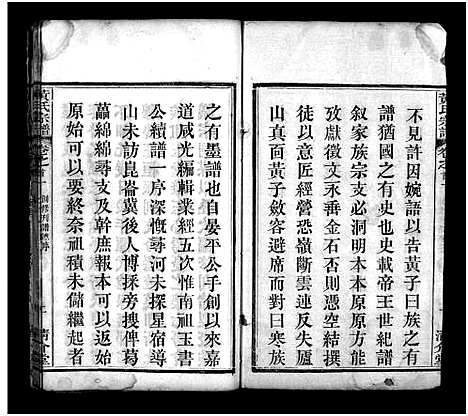 黃氏宗譜
不見許因婉譜以告黃子曰族之有
譜猶國之有史也史載帝王世紀譜
叙家族宗支必洞明本本原原方能
攷獻徵文永垂金石否則憑空結撰
徒以意匠經營恐嶺斷雲連反失廬
山真面黃子斂容避席而對曰寒族
之有墨譜也自晏平公手創以來嘉
道咸光編輯業經五次逮南祖玉書
公續譜一序深慨尋河未探星宿導
山未訪崑崙冀後人博採旁搜俾葛
藟綿綿尋支及幹庶報本敬宗者有
原始可以要終奈祖積未儲繼起者
黃氏宗譜